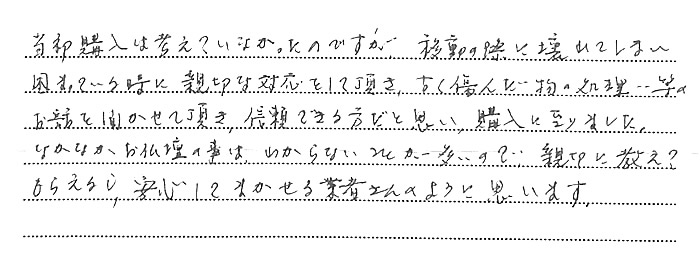 当初購入は考えていなかったのですが、移動の際に壊れてしまい
困まっている時に親切な対応をして頂き、古く傷んだ物の処理…等の
お話を聞かせて頂き、信頼できる方だと思い、購入に至りました。
なかなかお仏壇の事は、わからないことが多いので、親切に教えて
もらえるし、安心してまかせる業者さんのように思います。